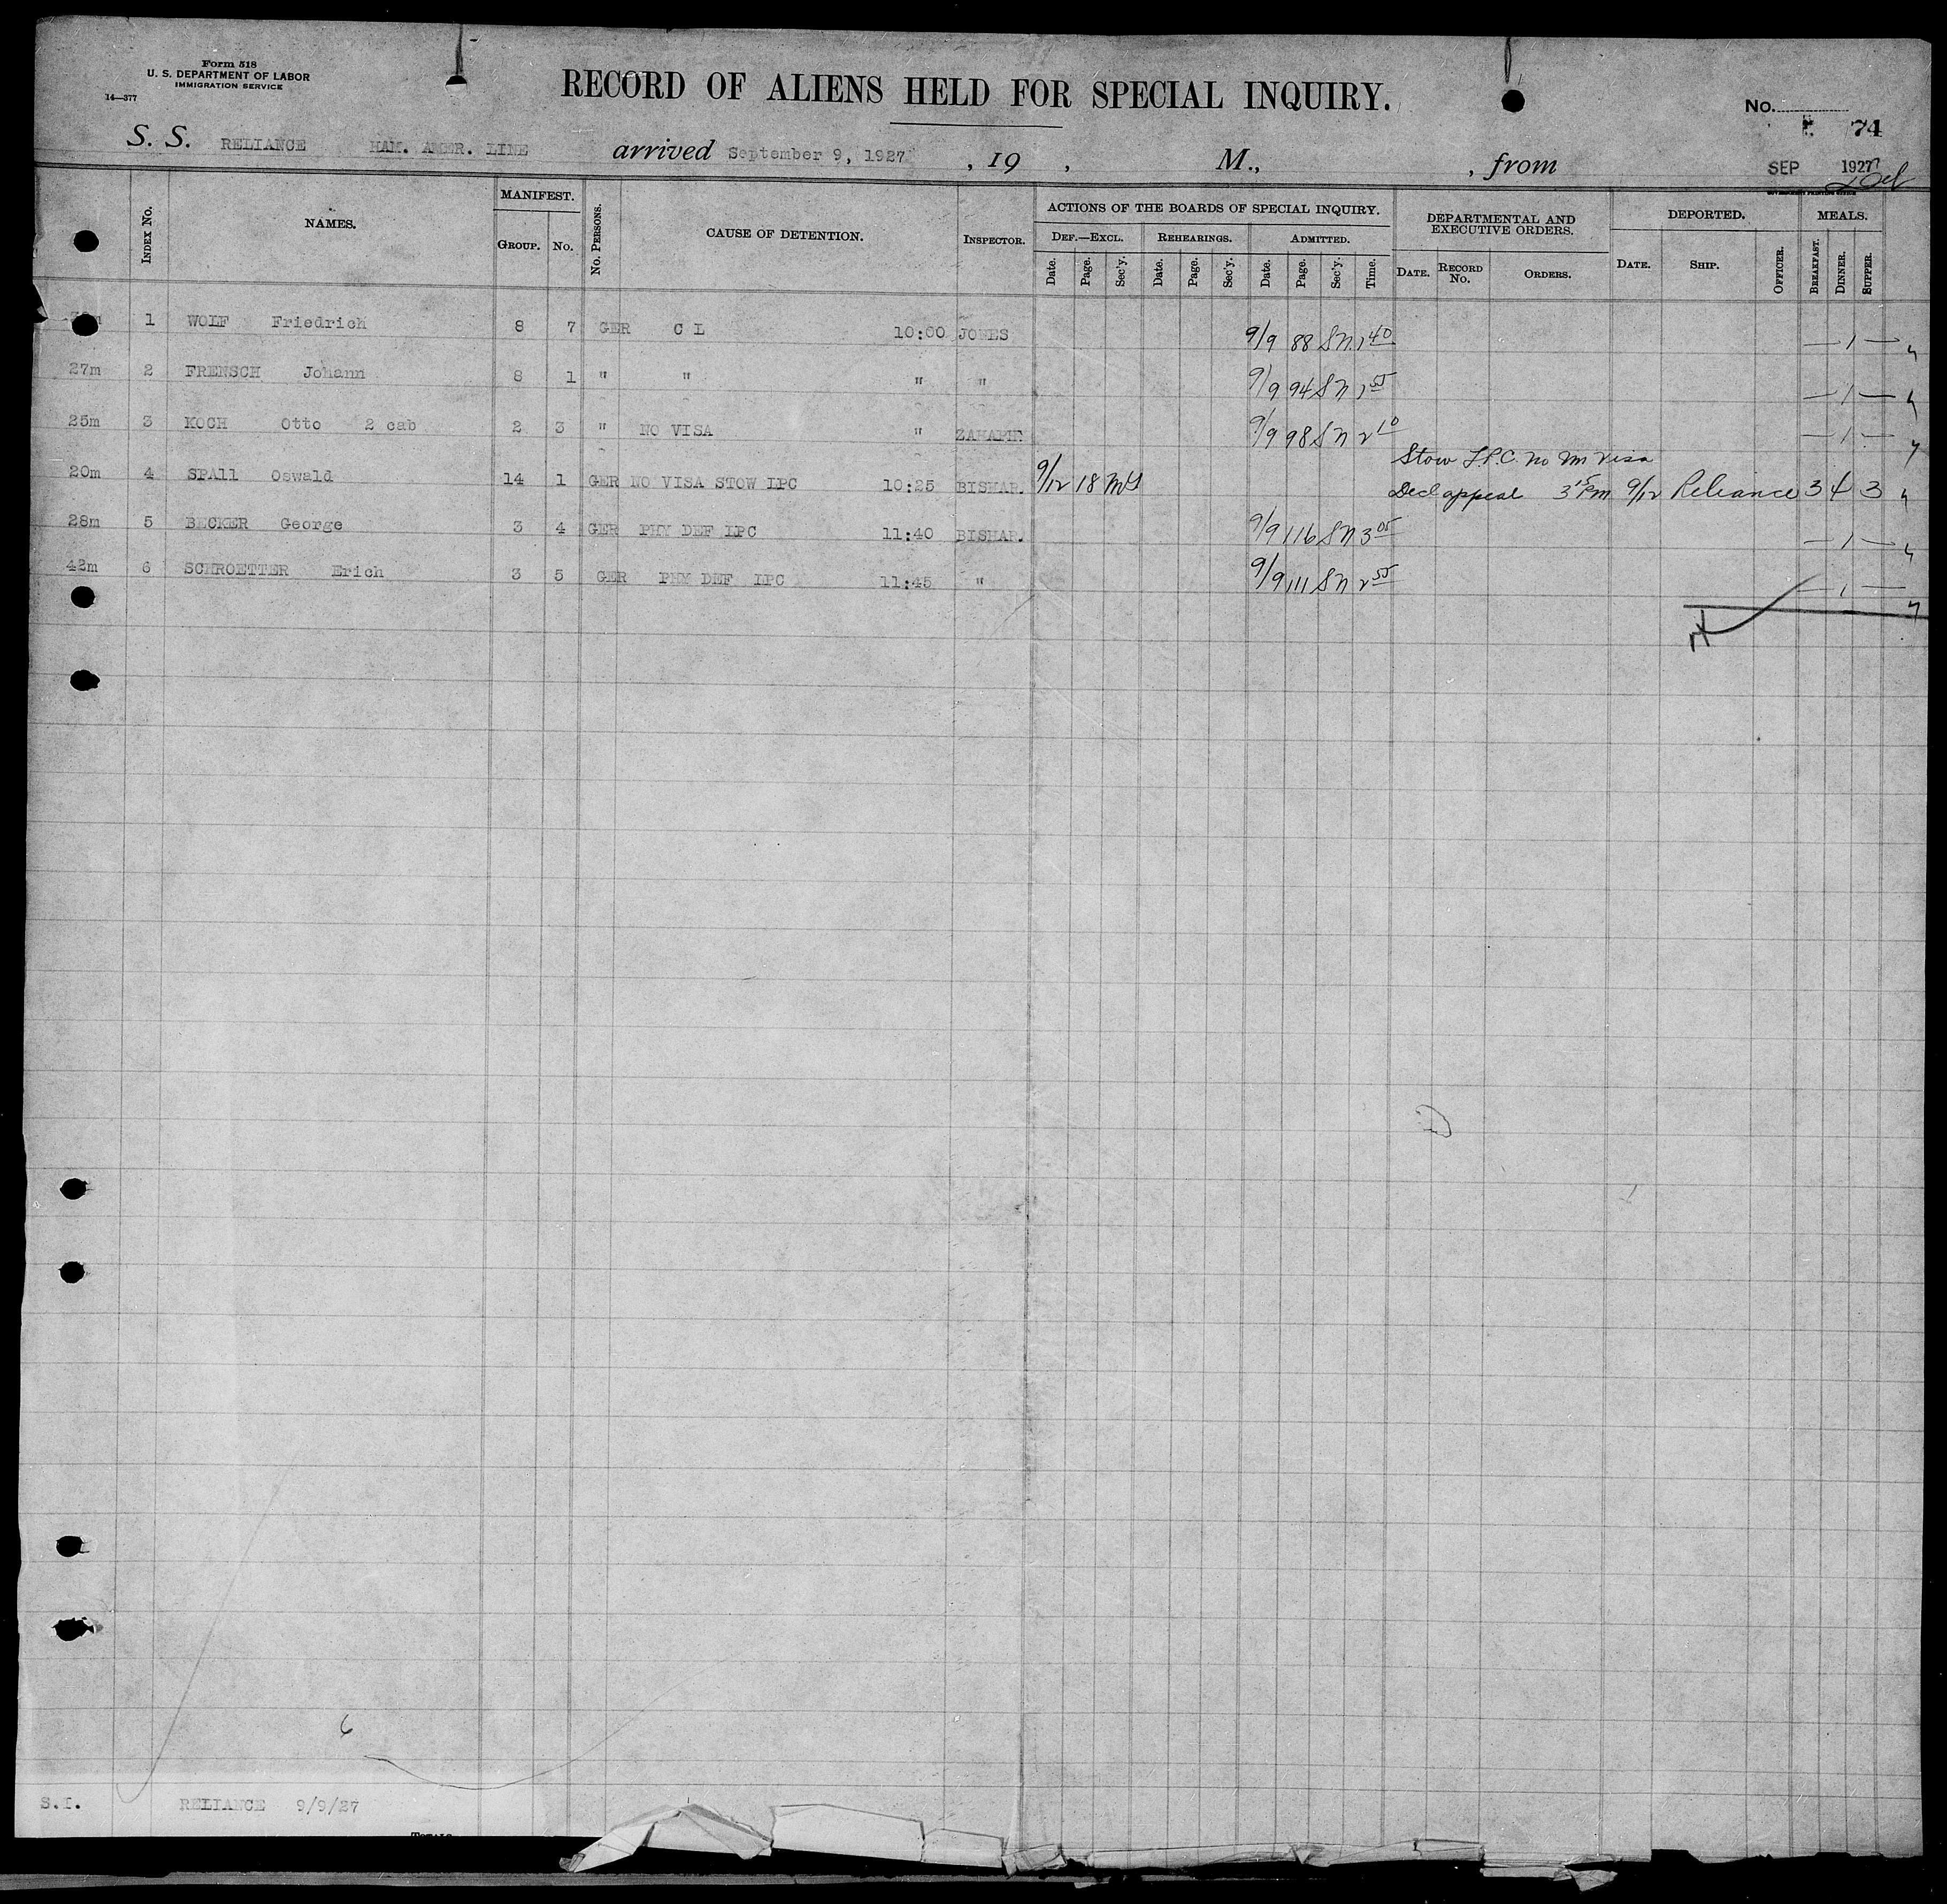 Form 518
U. S. DEPARTMENT OF LABOR
IMMIGRATION SERVICE
14—377
RECORD OF ALIENS HELD FOR SPECIAL INQUIRY.
No.
74
S. S. RELIANCE HAM. AMER. LINE arrived September 9, 1927 , 19 , M., , from
SEP 1927
GOVERNMENT PRINTING OFFICE
INDEX No. NAMES. MANIFEST. GROUP. No. No. PERSONS. CAUSE OF DETENTION. INSPECTOR. ACTIONS OF THE BOARDS OF SPECIAL INQUIRY. DEPARTMENTAL AND EXECUTIVE ORDERS. DEPORTED. MEALS.
DEF.—EXCL. REHEARINGS. ADMITTED.
Date. Page. Sec'y. Date. Page. Sec'y. Date. Page. Sec'y. Time. DATE. RECORD No. ORDERS. DATE. SHIP. OFFICER. BREAKFAST. DINNER. SUPPER.
1 WOLF Friedrich 8 7 GER C L 10:00 JONES 9/9 88 SN 1 40 — 1 —
27m 2 FRENSCH Johann 8 1 " " " " 9/9 94 SN 1 55 — 1 —
25m 3 KOCH Otto 2 cab 2 3 " NO VISA " 9/9 98 SN 2 10 — 1 —
Stow L.P.C. no Im visa
20m 4 SPAll Oswald 14 1 GER NO VISA STOW LPC 10:25 BISMAR. 9/12 18 Decl appeal 3 15 Pm 9/12 Reliance 3 4 3
28m 5 BECKER George 3 4 GER PHY DEF LPC 11:40 BISMAR. 9/9 116 SN 3 05 — 1 —
42m 6 SCHROETTER Erich 3 5 GER PHY DEF LPC 11:45 " 9/9 111 SN 2 55 — 1 —
6
S.I. RELIANCE 9/9/27
TOTALS